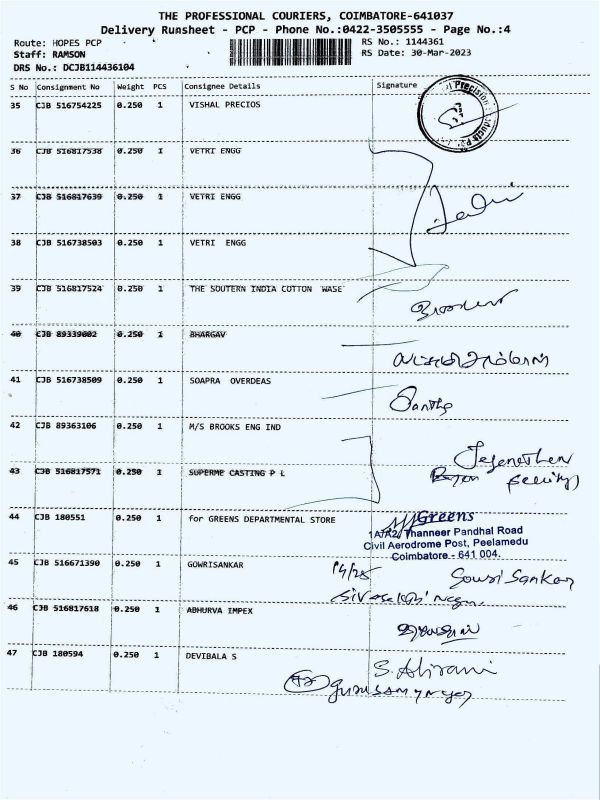 THE PROFESSIONAL COURIERS, COIMBATORE-641037
Delivery Runsheet - PCP - Phone No.:0422-3505555 - Page No.:4
Route: HOPES PCP
RS No.: 1144361
Staff: RAMSON
RS Date: 30-Mar-2023
DRS No.: DCJB114436104
S No Consignment No Weight PCS Consignee Details Signature
35 CJB 516754225 0.250 1 VISHAL PRECIOS
Precision
36 CJB 516817538 0.250 1 VETRI ENGG
37 CJB 516817639 0.250 1 VETRI ENGG
38 CJB 516738503 0.250 1 VETRI ENGG
39 CJB 516817524 0.250 1 THE SOUTERN INDIA COTTON WASE
40 CJB 89339002 0.250 1 BHARGAV
41 CJB 516738509 0.250 1 SOAPRA OVERDEAS
42 CJB 89363106 0.250 1 M/S BROOKS ENG IND
43 CJB 516817571 0.250 1 SUPERME CASTING P L
44 CJB 180551 0.250 1 for GREENS DEPARTMENTAL STORE
Greens
1A/A2, Thanneer Pandhal Road
Civil Aerodrome Post, Peelamedu
Coimbatore - 641 004.
45 CJB 516671390 0.250 1 GOWRISANKAR
Gowri Sankar
46 CJB 516817618 0.250 1 ABHURVA IMPEX
47 CJB 180594 0.250 1 DEVIBALA S
S. Abirami